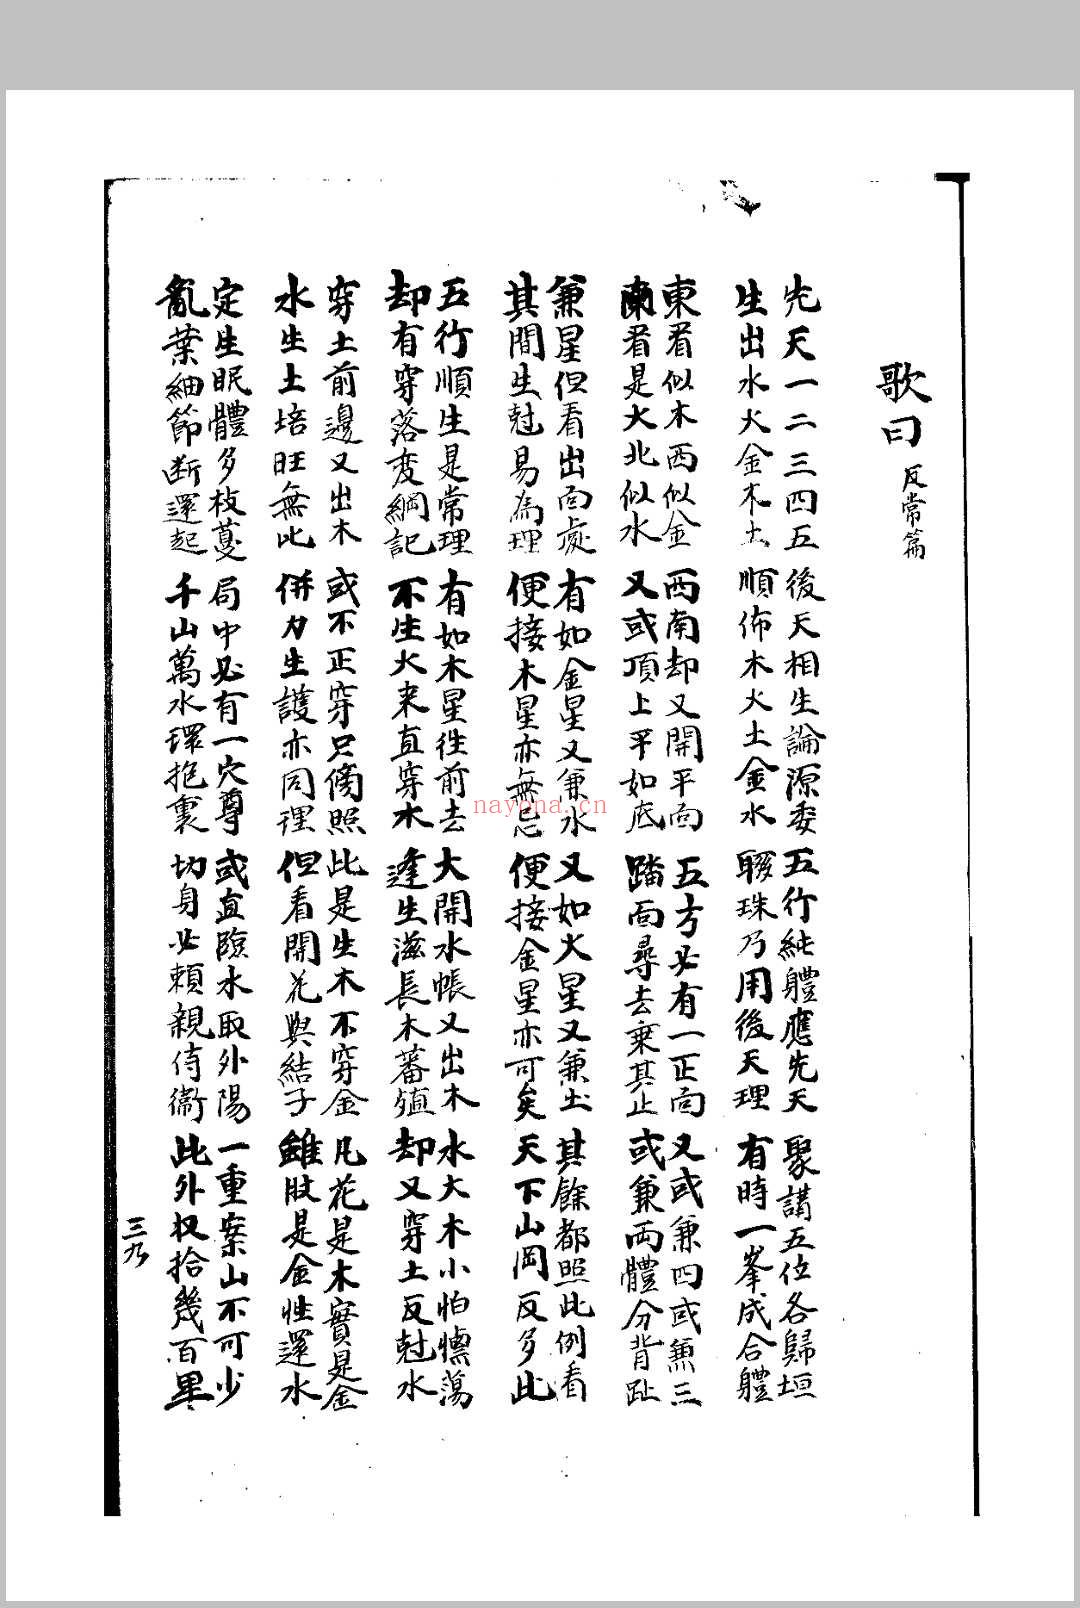 歌曰 反常篇
先天一二三四五 後天相生論源委 五行純體應先天 聚講五位各歸垣
生出水火金木土 順佈木火土金水 聯珠乃用後天理 有時一峯成合體
東看似木西似金 西南却又開平面 五方必有一正向 又或兼四或兼三
南看是火北似水 又或頂上平如底 踏面尋去乘其止 或兼兩體分背趾
兼星但看出面處 有如金星又兼水 又如火星又兼土 其餘都照此例看
其間生尅易為理 便接木星亦無忌 便接金星亦可矣 天下山岡反多此
五行順生是常理 有如木星徃前去 大開水帳又出木 水大木小怕漂蕩
却有穿落变綱記 不生火来直穿水 逢生滋長木蕃殖 却又穿土反尅水
穿土前邊又出木 或不正穿只傍照 此是生木不穿金 凡花是木實是金
水生土培旺無比 併力生護亦同理 但看開花與結子 雖肢是金性還水
定生眠體多枝蔓 局中必有一穴尊 或直臨水取外陽 一重案山不可少
亂葉細節断還起 千山萬水環抱裏 切身必賴親侍衞 此外収拾幾百里
三九
nayona.cn